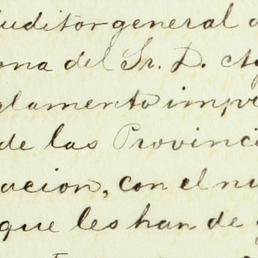 Auditor general
ona del Sr. D.
glamento impre
de las Provinci
uacion, con el nu
que les han de